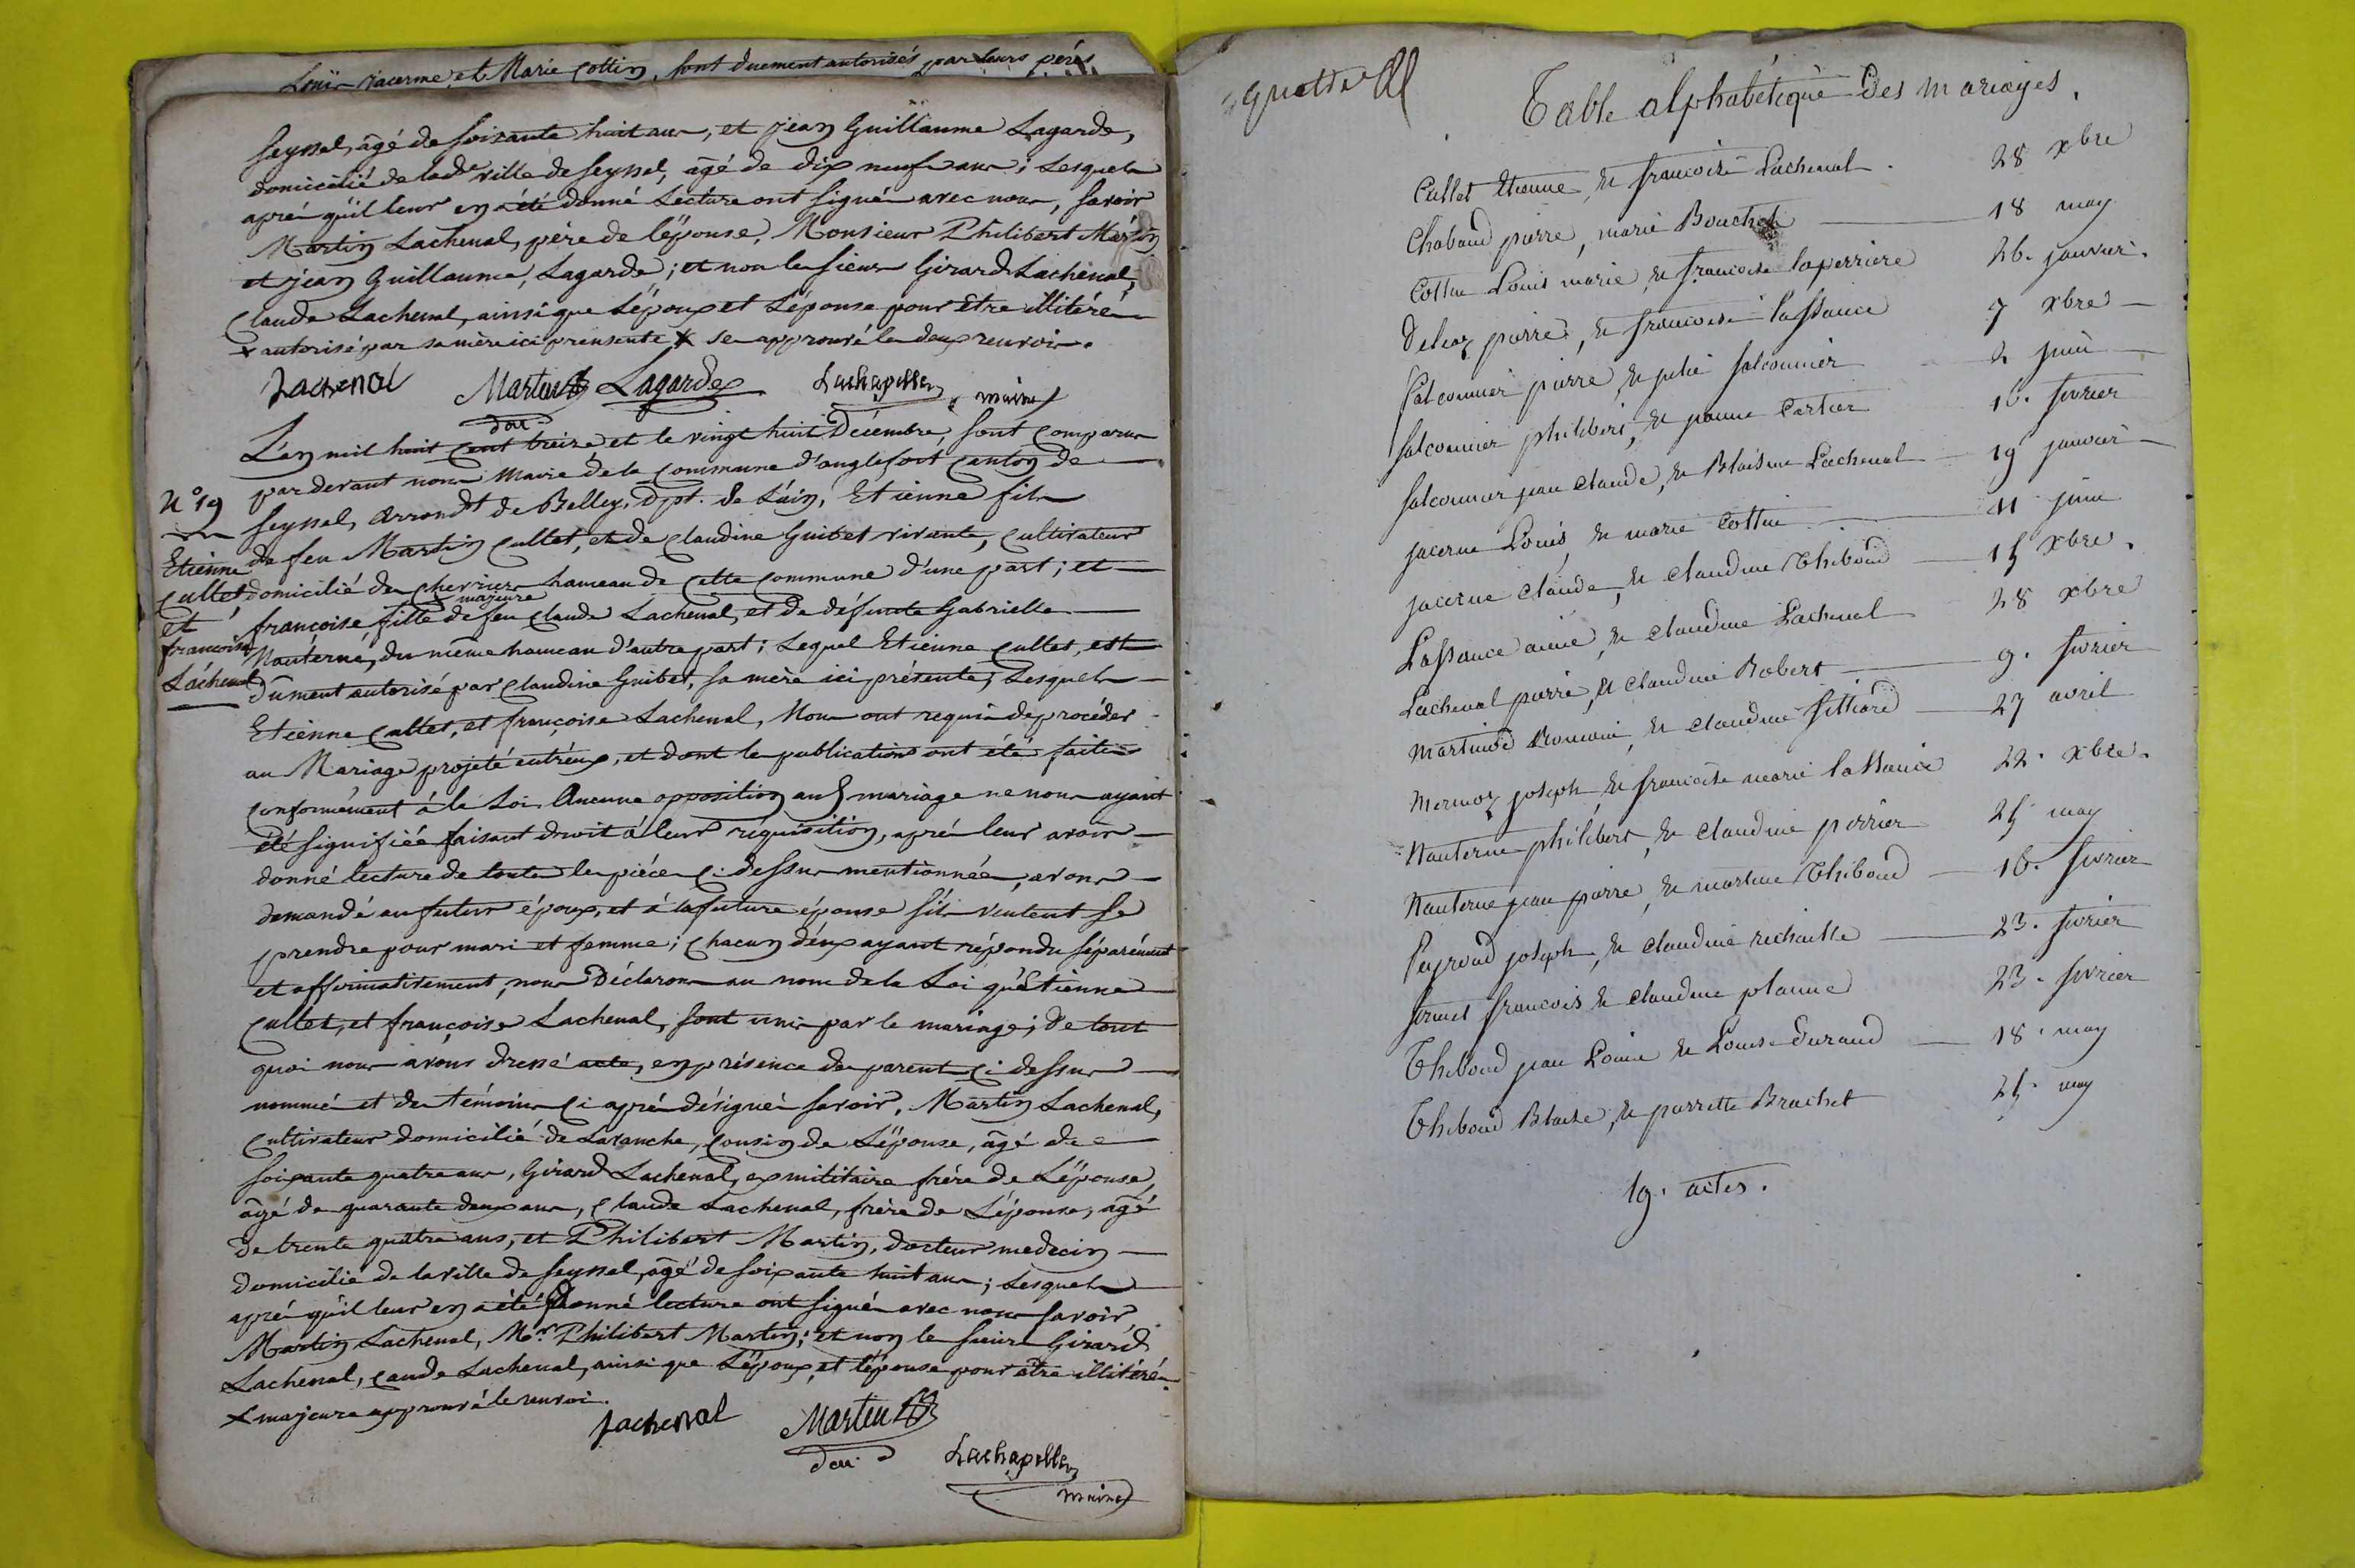 Louis jacerme, et Marie Cottin, sont duement autorisés par leurs pères
Seyssel, agé de soixante huit ans, et jean Guillaume Lagarde,
domicilié de lade ville de Seyssel, agé de dix neuf ans; Lesquels
après qu'il leur en a été donné Lecture ont signés avec nous, savoir
Martin Lachenal, père de l'épouse, Monsieur Philibert Martin
et jean Guillaume, Lagarde; et non les sieurs Girard Lachenal,
Claude Lachenal, ainsi que L'époux et L'épouse pour Etre illitérés
x autorisé par sa mère ici prensente x se approuvé les deux renvois.
Lachenal Martin Lagarde Lachapelle
dou. maire
L'an mil huit cent treize et le vingt huit Décembre, sont Comparus
par devant nous Maire de la Commune d'anglefort Canton de
N° 19
Seyssel, Arrondt de Belley, Dpt. de L'ain, Etienne fils
de feu Martin Cullet, et de Claudine Guibet vivante, Cultivateur
Etienne
Cullet
et
francoise
Lachenal
domicilié de Chevrier hameau de Cette Commune d'une part; et
majeure
françoise fille de feu Claude Lachenal, et de défunte Gabrielle
Nanterne, du même hameau d'autre part; Lequel Etienne Cullet, est
dûment autorisé par Claudine Guibet, sa mère ici présente; Lesquels
Etienne Cullet, et françoise Lachenal, Nous ont requis de procéder
au Mariage projeté entr'eux, et dont les publications ont été faites
Conformément à la Loi. Aucune opposition aud mariage ne nous ayant
été signifiée faisant droit à leur réquisition, après leur avoir
donné lecture de toutes les pièces Ci dessus mentionnées, avons
demandé au futur époux, et à la future épouse s'ils veulent se
prendre pour mari et femme; Chacun d'eux ayant répondu séparément
et affirmativement, nous Déclarons au nom de la Loi qu'Etienne
Cullet, et françoise Lachenal, sont unis par le mariage; De tout
quoi nous avons dressé acte, en présence des parents Ci dessus
nommés et des témoins Ci après désignés savoir, Martin Lachenal,
Cultivateur domicilié de Lavanche, Cousin de L'épouse, âgé de
soixante quatre ans, Girard Lachenal, ex militaire frère de L'épouse,
agé de quarante deux ans, Claude Lachenal, frère de L'épouse, agé
de trente quatre ans, et Philibert Martin, docteur medecin
domicilié de la ville de Seyssel, agé de soixante huit ans; Lesquels
après qu'il leur en a été donné lecture ont signés avec nous savoir,
Martin Lachenal, Mr. Philibert Martin; et non les sieurs Girard
Lachenal, Caude Lachenal, ainsi que L'époux et l'épouse pour être illitérés.
x majeure approuvé le renvoi.
Lachenal Martin
dou. Lachapelle
maire
Table alphabétique des mariages.
Cullet Etienne, & francoise Lachenal. 28 xbre
Chaboud pierre, marie Bouchet 18 may
Cottin Louis marie, & francoise laperriere 26. janvier.
Deleaz pierre, & francoise lassauce 7 xbre
falconnier pierre, & julie falconnier 2 juin
falconnier philibert, & jeanne Cartier 16. fevrier
falconnier jean Claude, & Blaisine Lachenal 19 janvier
jacerme Louis, & marie Cottin 11 juin
jacerme Claude, & Claudine Thiboud 15 xbre.
Lassauce aimé, & Claudine Lachenal 28 xbre
Lachenal pierre, & Claudine Robert 9. fevrier
Martinod Romain, & Claudine filliard 27 avril
Mermoz joseph, & francoise marie lassauce 22. xbre.
Nanterne philibert, & Claudine perrier 25 may
Nanterne jean pierre, & martine Thiboud 16. fevrier
Peyroud joseph, & Claudine richaille 23. fevrier
francois & Claudine planne 23. fevrier
Thiboud jean Louis & Louise Durand 18. may
Thiboud Blaise, & pierrette Brachet 25. may
19. actes.